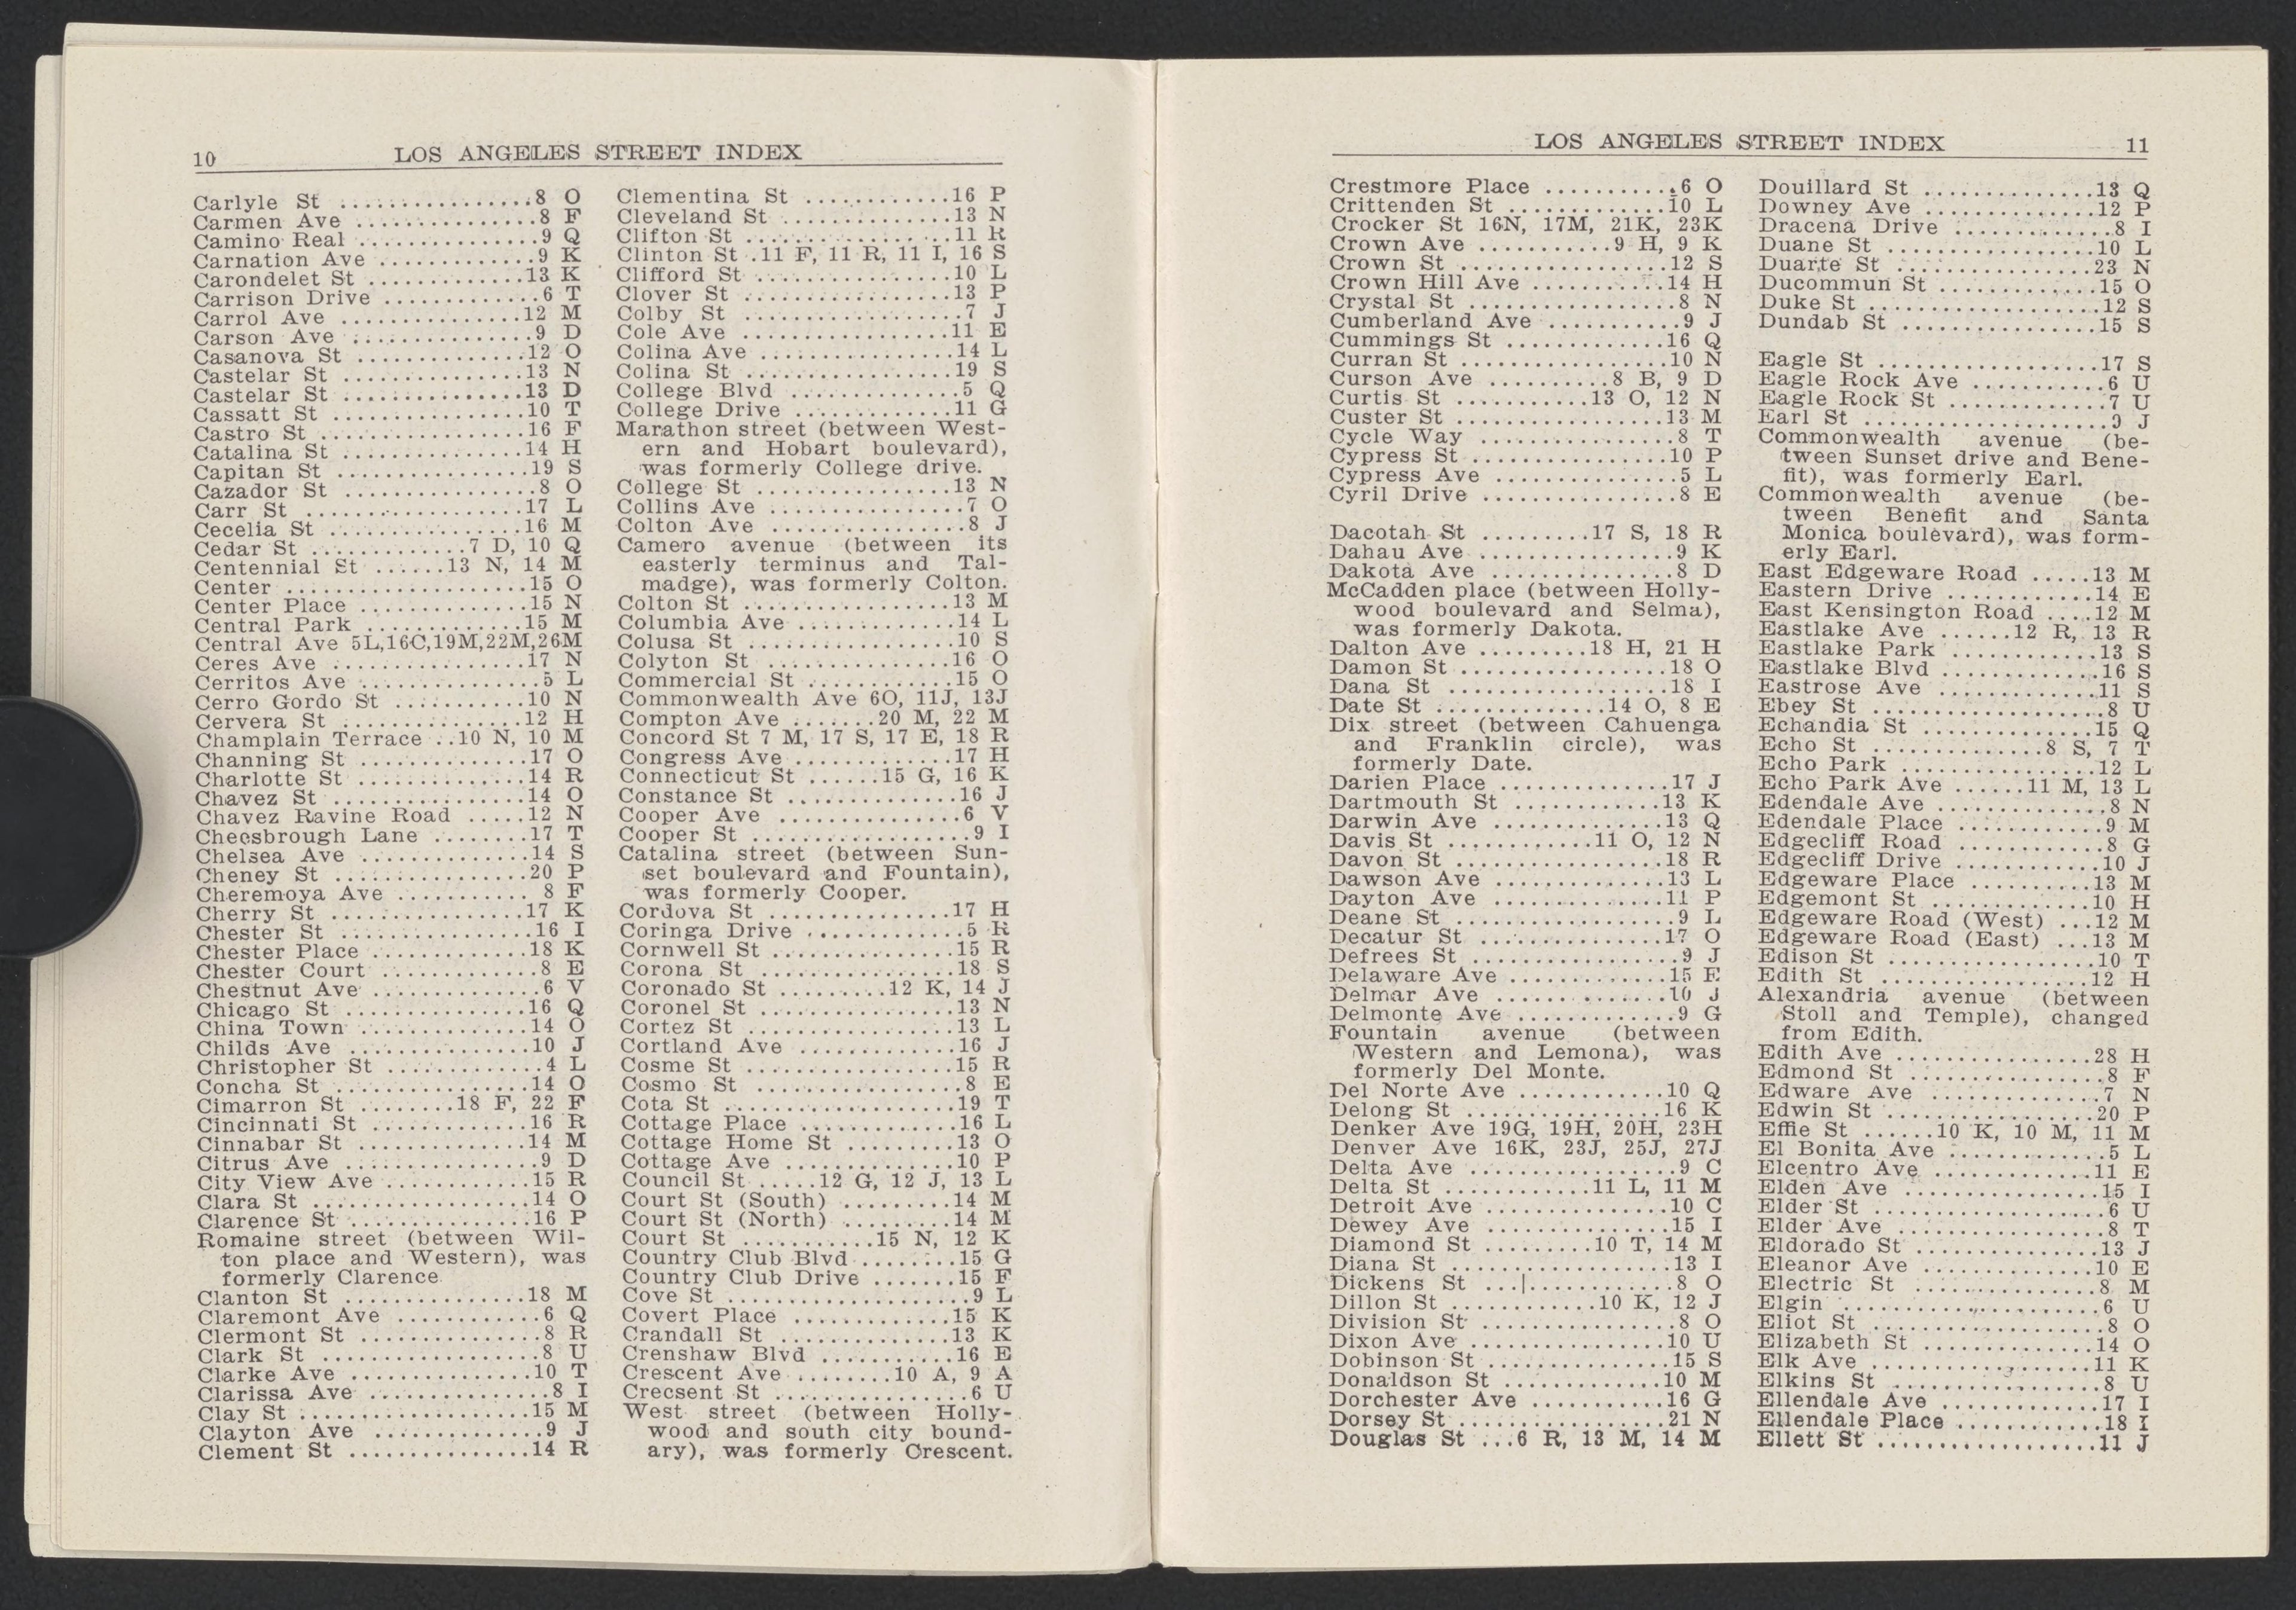 10 LOS ANGELES STREET INDEX
Carlyle St ................8 O
Carmen Ave ...............8 F
Camino Real ...............9 Q
Carnation Ave .............9 K
Carondelet St .............13 K
Carrison Drive .............6 T
Carrol Ave ...............12 M
Carson Ave ...............9 D
Casanova St ..............12 O
Castelar St ...............13 N
Castelar St ...............13 D
Cassatt St ................10 T
Castro St .................16 F
Catalina St ...............14 H
Capitan St ................19 S
Cazador St ................8 O
Carr St ..................17 L
Cecelia St ................16 M
Cedar St .............7 D, 10 Q
Centennial St ......13 N, 14 M
Center ....................15 O
Center Place ..............15 N
Central Park ..............15 M
Central Ave 5L,16C,19M,22M,26M
Ceres Ave ................17 N
Cerritos Ave ...............5 L
Cerro Gordo St ...........10 N
Cervera St ...............12 H
Champlain Terrace ..10 N, 10 M
Channing St ..............17 O
Charlotte St ..............14 R
Chavez St ................14 O
Chavez Ravine Road .....12 N
Cheesbrough Lane ........17 T
Chelsea Ave ..............14 S
Cheney St ................20 P
Cheremoya Ave ............8 F
Cherry St ................17 K
Chester St ................16 I
Chester Place .............18 K
Chester Court .............8 E
Chestnut Ave ..............6 V
Chicago St ................16 Q
China Town ..............14 O
Childs Ave ...............10 J
Christopher St .............4 L
Concha St ................14 O
Cimarron St ........18 F, 22 F
Cincinnati St ..............16 R
Cinnabar St ..............14 M
Citrus Ave ................9 D
City View Ave ............15 R
Clara St ..................14 O
Clarence St ...............16 P
Romaine street (between Wil-
ton place and Western), was
formerly Clarence
Clanton St ...............18 M
Claremont Ave ............6 Q
Clermont St ...............8 R
Clark St ..................8 U
Clarke Ave ...............10 T
Clarissa Ave ...............8 I
Clay St ...................15 M
Clayton Ave ..............9 J
Clement St ...............14 R
Clementina St ............16 P
Cleveland St ..............13 N
Clifton St .................11 R
Clinton St .11 F, 11 R, 11 I, 16 S
Clifford St ................10 L
Clover St .................13 P
Colby St ..................7 J
Cole Ave .................11 E
Colina Ave ................14 L
Colina St .................19 S
College Blvd ...............5 Q
College Drive .............11 G
Marathon street (between West-
ern and Hobart boulevard),
was formerly College drive.
College St ................13 N
Collins Ave ................7 O
Colton Ave ................8 J
Camero avenue (between its
easterly terminus and Tal-
madge), was formerly Colton.
Colton St .................13 M
Columbia Ave .............14 L
Colusa St .................10 S
Colyton St ................16 O
Commercial St ............15 O
Commonwealth Ave 6O, 11J, 13J
Compton Ave .......20 M, 22 M
Concord St 7 M, 17 S, 17 E, 18 R
Congress Ave .............17 H
Connecticut St ......15 G, 16 K
Constance St ..............16 J
Cooper Ave ...............6 V
Cooper St .................9 I
Catalina street (between Sun-
set boulevard and Fountain),
was formerly Cooper.
Cordova St ...............17 H
Coringa Drive .............5 R
Cornwell St ...............15 R
Corona St ................18 S
Coronado St .........12 K, 14 J
Coronel St ................13 N
Cortez St .................13 L
Cortland Ave .............16 J
Cosme St .................15 R
Cosmo St .................8 E
Cota St ...................19 T
Cottage Place .............16 L
Cottage Home St .........13 O
Cottage Ave ..............10 P
Council St .....12 G, 12 J, 13 L
Court St (South) .........14 M
Court St (North) .........14 M
Court St ...........15 N, 12 K
Country Club Blvd ........15 G
Country Club Drive .......15 F
Cove St ...................9 L
Covert Place .............15 K
Crandall St ...............13 K
Crenshaw Blvd ...........16 E
Crescent Ave ........10 A, 9 A
Crecsent St ................6 U
West street (between Holly-
wood and south city bound-
ary), was formerly Crescent.
LOS ANGELES STREET INDEX 11
Crestmore Place ...........6 O
Crittenden St .............10 L
Crocker St 16N, 17M, 21K, 23K
Crown Ave ...........9 H, 9 K
Crown St .................12 S
Crown Hill Ave ...........14 H
Crystal St .................8 N
Cumberland Ave ...........9 J
Cummings St .............16 Q
Curran St ................10 N
Curson Ave ..........8 B, 9 D
Curtis St ...........13 O, 12 N
Custer St .................13 M
Cycle Way ................8 T
Cypress St ................10 P
Cypress Ave ...............5 L
Cyril Drive ................8 E
Dacotah St .........17 S, 18 R
Dahau Ave ................9 K
Dakota Ave ...............8 D
McCadden place (between Holly-
wood boulevard and Selma),
was formerly Dakota.
Dalton Ave .........18 H, 21 H
Damon St .................18 O
Dana St ..................18 I
Date St ..............14 O, 8 E
Dix street (between Cahuenga
and Franklin circle), was
formerly Date.
Darien Place ..............17 J
Dartmouth St ............13 K
Darwin Ave ..............13 Q
Davis St ............11 O, 12 N
Davon St .................18 R
Dawson Ave ..............13 L
Dayton Ave ..............11 P
Deane St ..................9 L
Decatur St ................17 O
Defrees St .................9 J
Delaware Ave .............15 E
Delmar Ave ..............10 J
Delmonte Ave .............9 G
Fountain avenue (between
Western and Lemona), was
formerly Del Monte.
Del Norte Ave ............10 Q
Delong St ................16 K
Denker Ave 19G, 19H, 20H, 23H
Denver Ave 16K, 23J, 25J, 27J
Delta Ave .................9 C
Delta St ............11 L, 11 M
Detroit Ave ...............10 C
Dewey Ave ...............15 I
Diamond St .........10 T, 14 M
Diana St ..................13 I
Dickens St ................8 O
Dillon St ............10 K, 12 J
Division St ................8 O
Dixon Ave ................10 U
Dobinson St ..............15 S
Donaldson St .............10 M
Dorchester Ave ...........16 G
Dorsey St .................21 N
Douglas St ...6 R, 13 M, 14 M
Douillard St ..............13 Q
Downey Ave ..............12 P
Dracena Drive .............8 I
Duane St .................10 L
Duarte St ................23 N
Ducommun St ............15 O
Duke St ..................12 S
Dundab St ................15 S
Eagle St ..................17 S
Eagle Rock Ave ...........6 U
Eagle Rock St ............7 U
Earl St ...................9 J
Commonwealth avenue (be-
tween Sunset drive and Bene-
fit), was formerly Earl.
Commonwealth avenue (be-
tween Benefit and Santa
Monica boulevard), was form-
erly Earl.
East Edgeware Road .....13 M
Eastern Drive ............14 E
East Kensington Road ....12 M
Eastlake Ave ......12 R, 13 R
Eastlake Park ............13 S
Eastlake Blvd .............16 S
Eastrose Ave .............11 S
Ebey St ...................8 U
Echandia St ..............15 Q
Echo St ..............8 S, 7 T
Echo Park ................12 L
Echo Park Ave ......11 M, 13 L
Edendale Ave ..............8 N
Edendale Place ............9 M
Edgecliff Road ............8 G
Edgecliff Drive ............10 J
Edgeware Place ...........13 M
Edgemont St ..............10 H
Edgeware Road (West) ...12 M
Edgeware Road (East) ...13 M
Edison St .................10 T
Edith St ..................12 H
Alexandria avenue (between
Stoll and Temple), changed
from Edith.
Edith Ave ................28 H
Edmond St ................8 F
Edware Ave ...............7 N
Edwin St .................20 P
Effie St ......10 K, 10 M, 11 M
El Bonita Ave .............5 L
Elcentro Ave .............11 E
Elden Ave ................15 I
Elder St ..................6 U
Elder Ave .................8 T
Eldorado St ...............13 J
Eleanor Ave ..............10 E
Electric St ................8 M
Elgin .....................6 U
Eliot St ...................8 O
Elizabeth St ..............14 O
Elk Ave ..................11 K
Elkins St .................8 U
Ellendale Ave .............17 I
Ellendale Place ............18 I
Ellett St ..................11 J